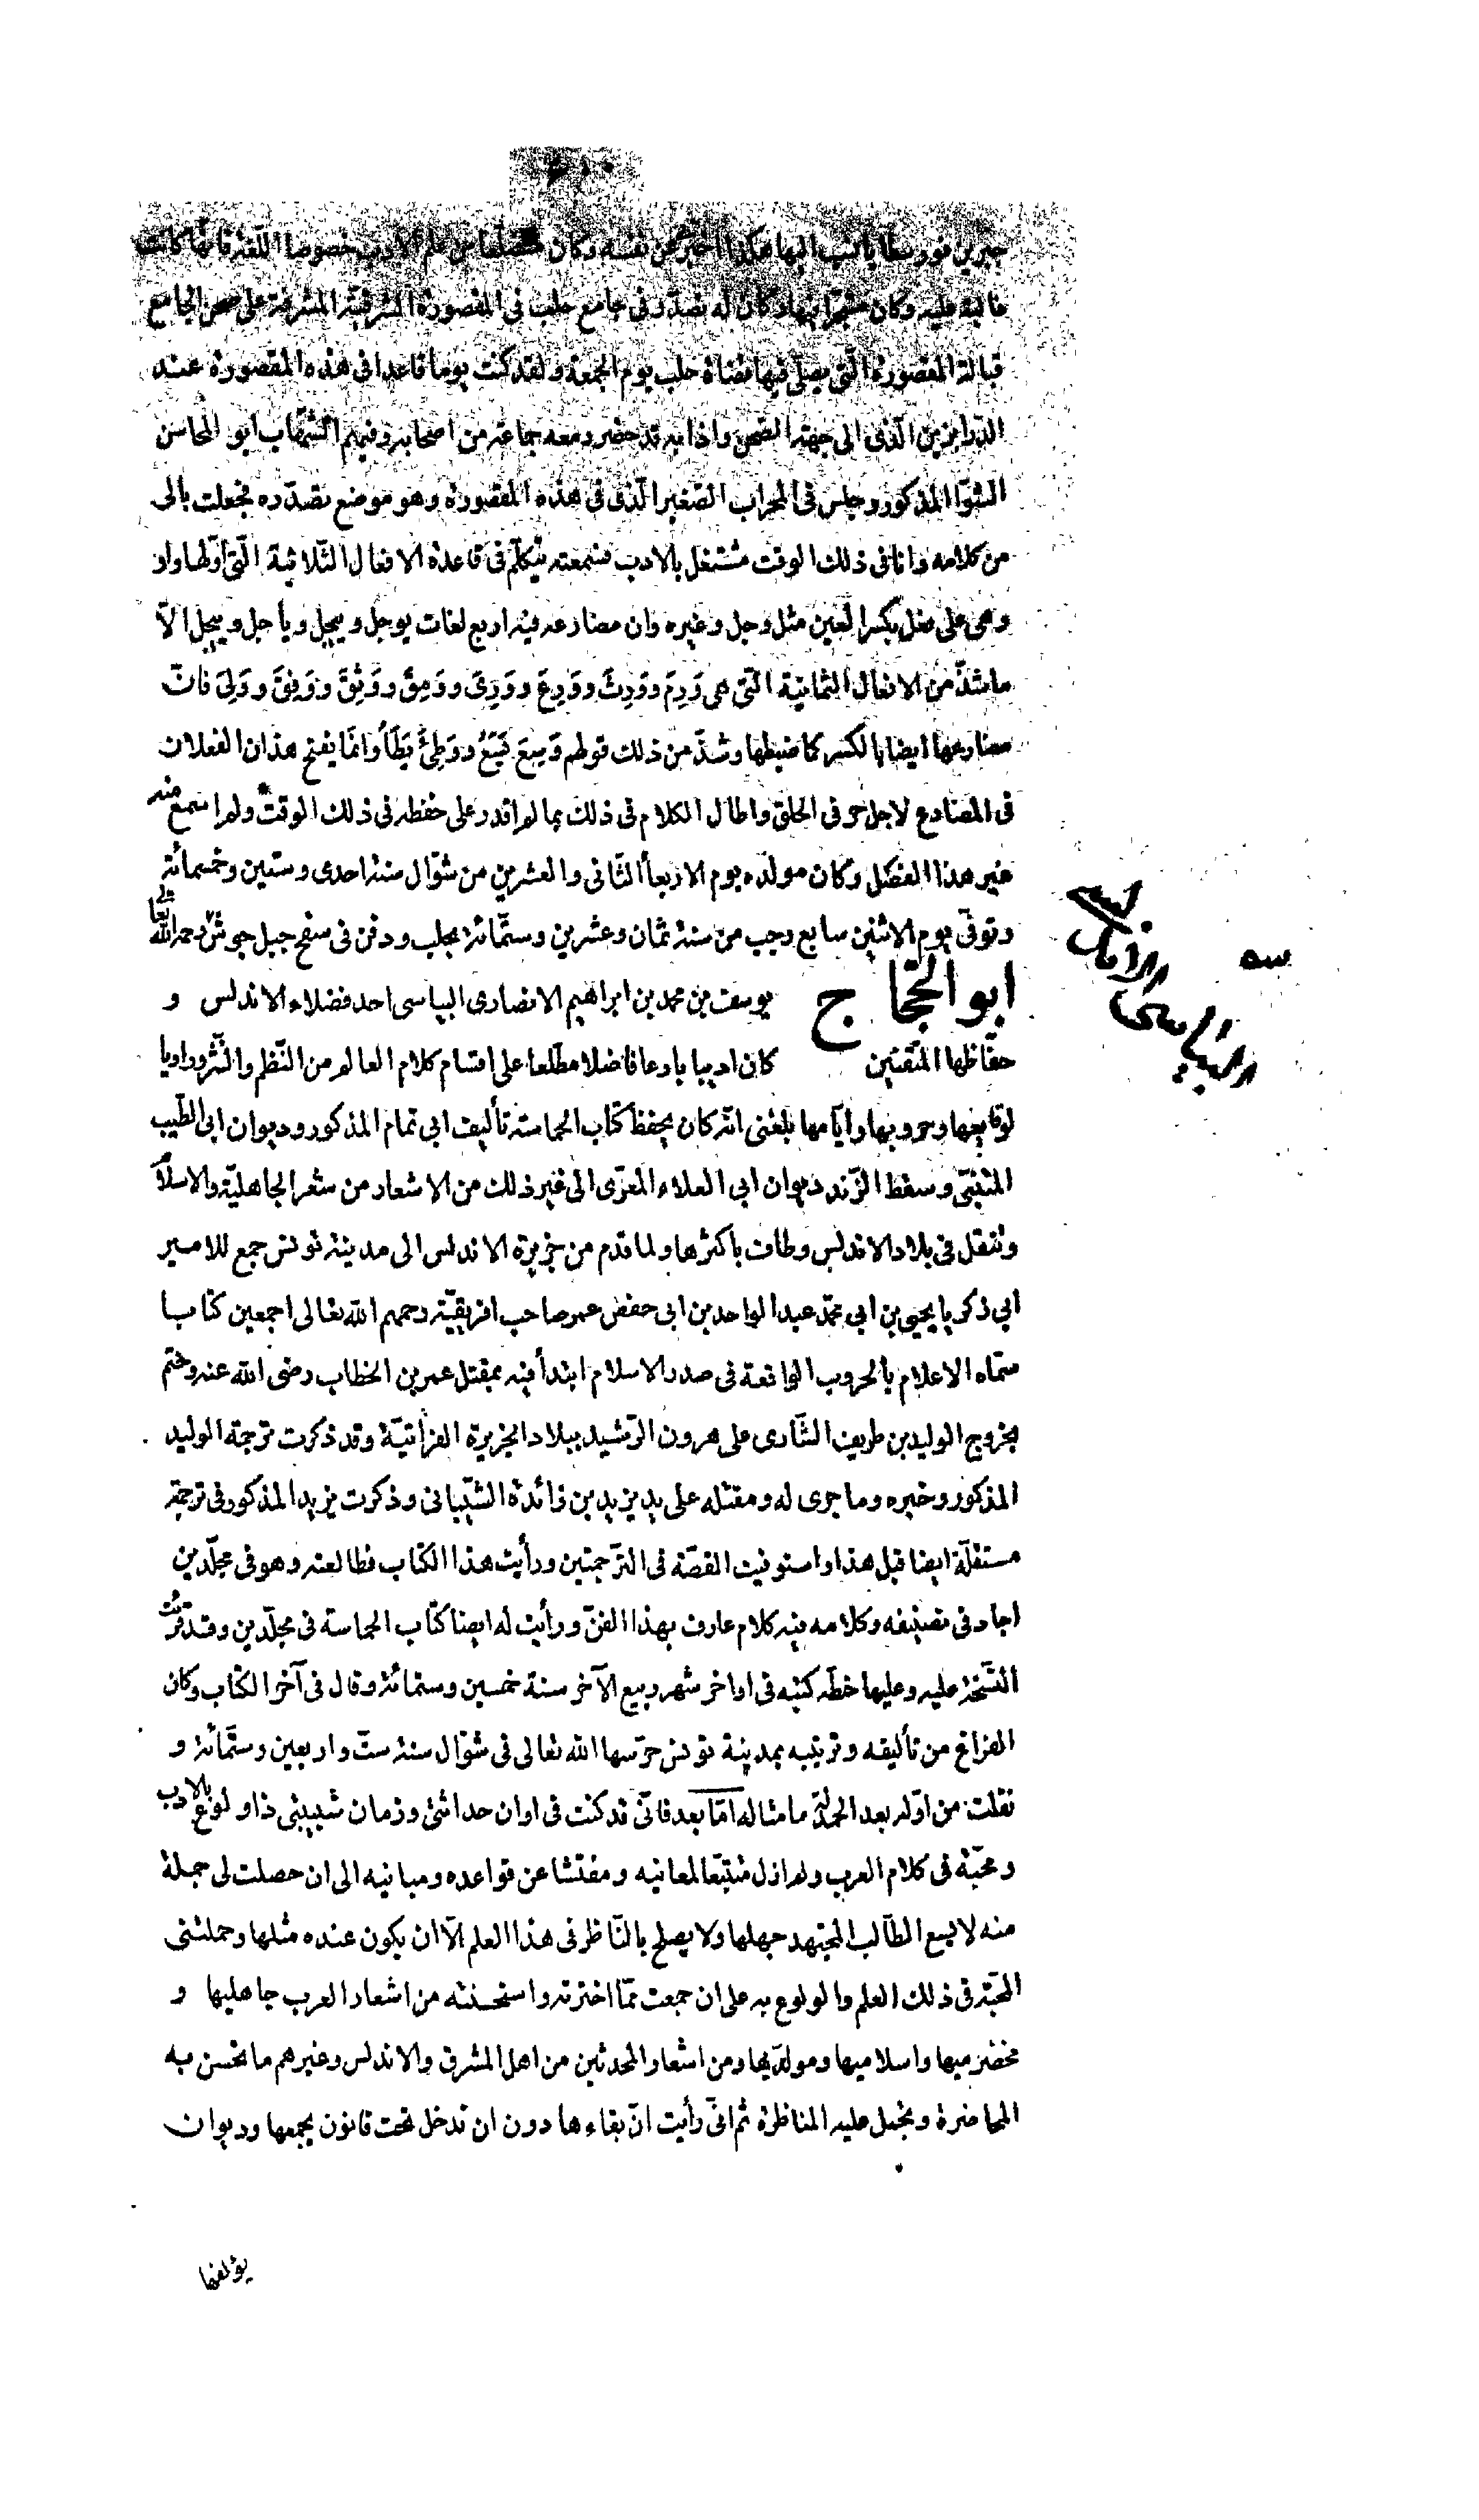 جبرين قورسطايا نسب اليها هكذا اخبر عن نفسه وكان متضلعا من علم الادب خصوصا اللّغة فانّها كانت
غالبة عليه وكان متبحّرا فيها وكان له تصدّر فى جامع حلب فى المقصورة الشرقيّة المشرفة على صحن الجامع
قبالة المقصورة الّتى يصلّى فيها قضاة حلب يوم الجمعة ولقد كنت يوما قاعدا فى هذه المقصورة عند
الدّرابزين الّذى الى جهة الصّحن واذا به قد حضر ومعه جماعة من اصحابه وفيهم الشّهاب ابو المحاسن
الشّوّا المذكور وجلس فى المحراب الصّغير الّذى فى هذه المقصورة وهو موضع تصدّره فجعلت بالى
من كلامه وانا فى ذلك الوقت مشتغل بالادب فسمعته يتكلّم فى قاعدة الافعال الثّلاثية الّتى اوّلها واو
وهى على فعل بكسر العين مثل وجل وغيره وان مضارعه فيه اربع لغات يوجل وييجل وياجل وييجل الّا
ما شذّ من الافعال الثمانية الّتى هى وَرِمَ ووَرِثَ ووَرِعَ ووَرِىَ ووَمِقَ ووَثِقَ ووَفِقَ ووَلِىَ فانّ
مضارعها ايضا بالكسر كماضيها وشذّ من ذلك قولهم وَسِعَ يَسَعُ ووَطِئَ يَطَأُ وانّما يفتح هذان الفعلان
فى المضارع لاجل حرفى الحلق واطال الكلام فى ذلك بما لم اقدر على حفظه فى ذلك الوقت ولم اسمع منه
غير هذا الفصل وكان مولده يوم الاربعأ الثّانى والعشرين من شوّال سنة احدى وستين وخمسمائة
وتوفّى يوم الاثنين سابع رجب من سنة ثمان وعشرين وستّمائة بحلب ودفن فى سفح جبل جوشن رحمه الله تعالى
ابو الحجّاج يوسف بن محمد بن ابراهيم الانصارى البياسى احد فضلاء الاندلس و
حفّاظها المتقنين كان اديبا بارعا فاضلا مطّلعا على اقسام كلام العالم من النّظم والنّثر وراويا
لوقايعها وحروبها وايّامها بلغنى انّه كان يحفظ كتاب الحماسة تأليف ابى تمام المذكور وديوان ابى الطّيب
المتنبّى وسقط الزّند ديوان ابى العلاء المعرّى الى غير ذلك من الاشعار من شعر الجاهليّة والاسلام
وتنقل فى بلاد الاندلس وطاف باكثرها ولما قدم من جزيرة الاندلس الى مدينة تونس جمع للامير
ابى زكريا يحيى بن ابى محمّد عبد الواحد بن ابى حفص عمر صاحب افريقيّة رحمهم الله تعالى اجمعين كتابا
سمّاه الاعلام بالحروب الواقعة فى صدر الاسلام ابتدأ فيه بمقتل عمر بن الخطاب رضى الله عنه وختم
بخروج الوليد بن طريف الشّارى على هرون الرّشيد ببلاد الجزيرة الفراتيّة وقد ذكرت ترجمة الوليد
المذكور وخبره وما جرى له ومقتله على يد يزيد بن زائدة الشّيبانى وذكرت يزيد المذكور فى ترجمة
مستقلّة ايضا قبل هذا واستوفيت القصّة فى التّرجمتين ورأيت هذا الكتاب فطالعته وهو فى مجلّدين
اجاد فى تصنيفه وكلامه فيه كلام عارف بهذا الفنّ ورأيت له ايضا كتاب الحماسة فى مجلّدين وقد قرئت
النّسخة عليه وعليها خطّه كتبه فى اواخر شهر ربيع الآخر سنة خمسين وستمائة وقال فى آخر الكتاب وكان
الفراغ من تأليفه وترتيبه بمدينة تونس حرّسها الله تعالى فى شوّال سنة ستّ واربعين وستّمائة و
نقلت من اوّله بعد الحمدلة ما مثاله امّا بعد فانّى قد كنت فى اوان حداثتى وزمان شبيبتى ذا ولوع بالادب
ومحبّة فى كلام العرب ولم ازل متتبّعا لمعانيه ومفتشا عن قواعده ومبانيه الى ان حصلت لى جملة
منه لا يسع الطّالب المجتهد جهلها ولا يصلح بالنّاظر فى هذا العلم الّا ان يكون عنده مثلها وحملتنى
المحبّة فى ذلك العلم والولوع به على ان جمعت ممّا اخترته واستحسنته من اشعار العرب جاهليها و
مخضرميها واسلاميها ومولدّيها ومن اشعار المحدثين من اهل المشرق والاندلس وغيرهم ما تحسن به
المحاضرة وتجمل عليه المناظرة ثم انّى رأيت انّ بقاءها دون ان تدخل تحت قانون يجمعها وديوان
يؤلفها
البياسى